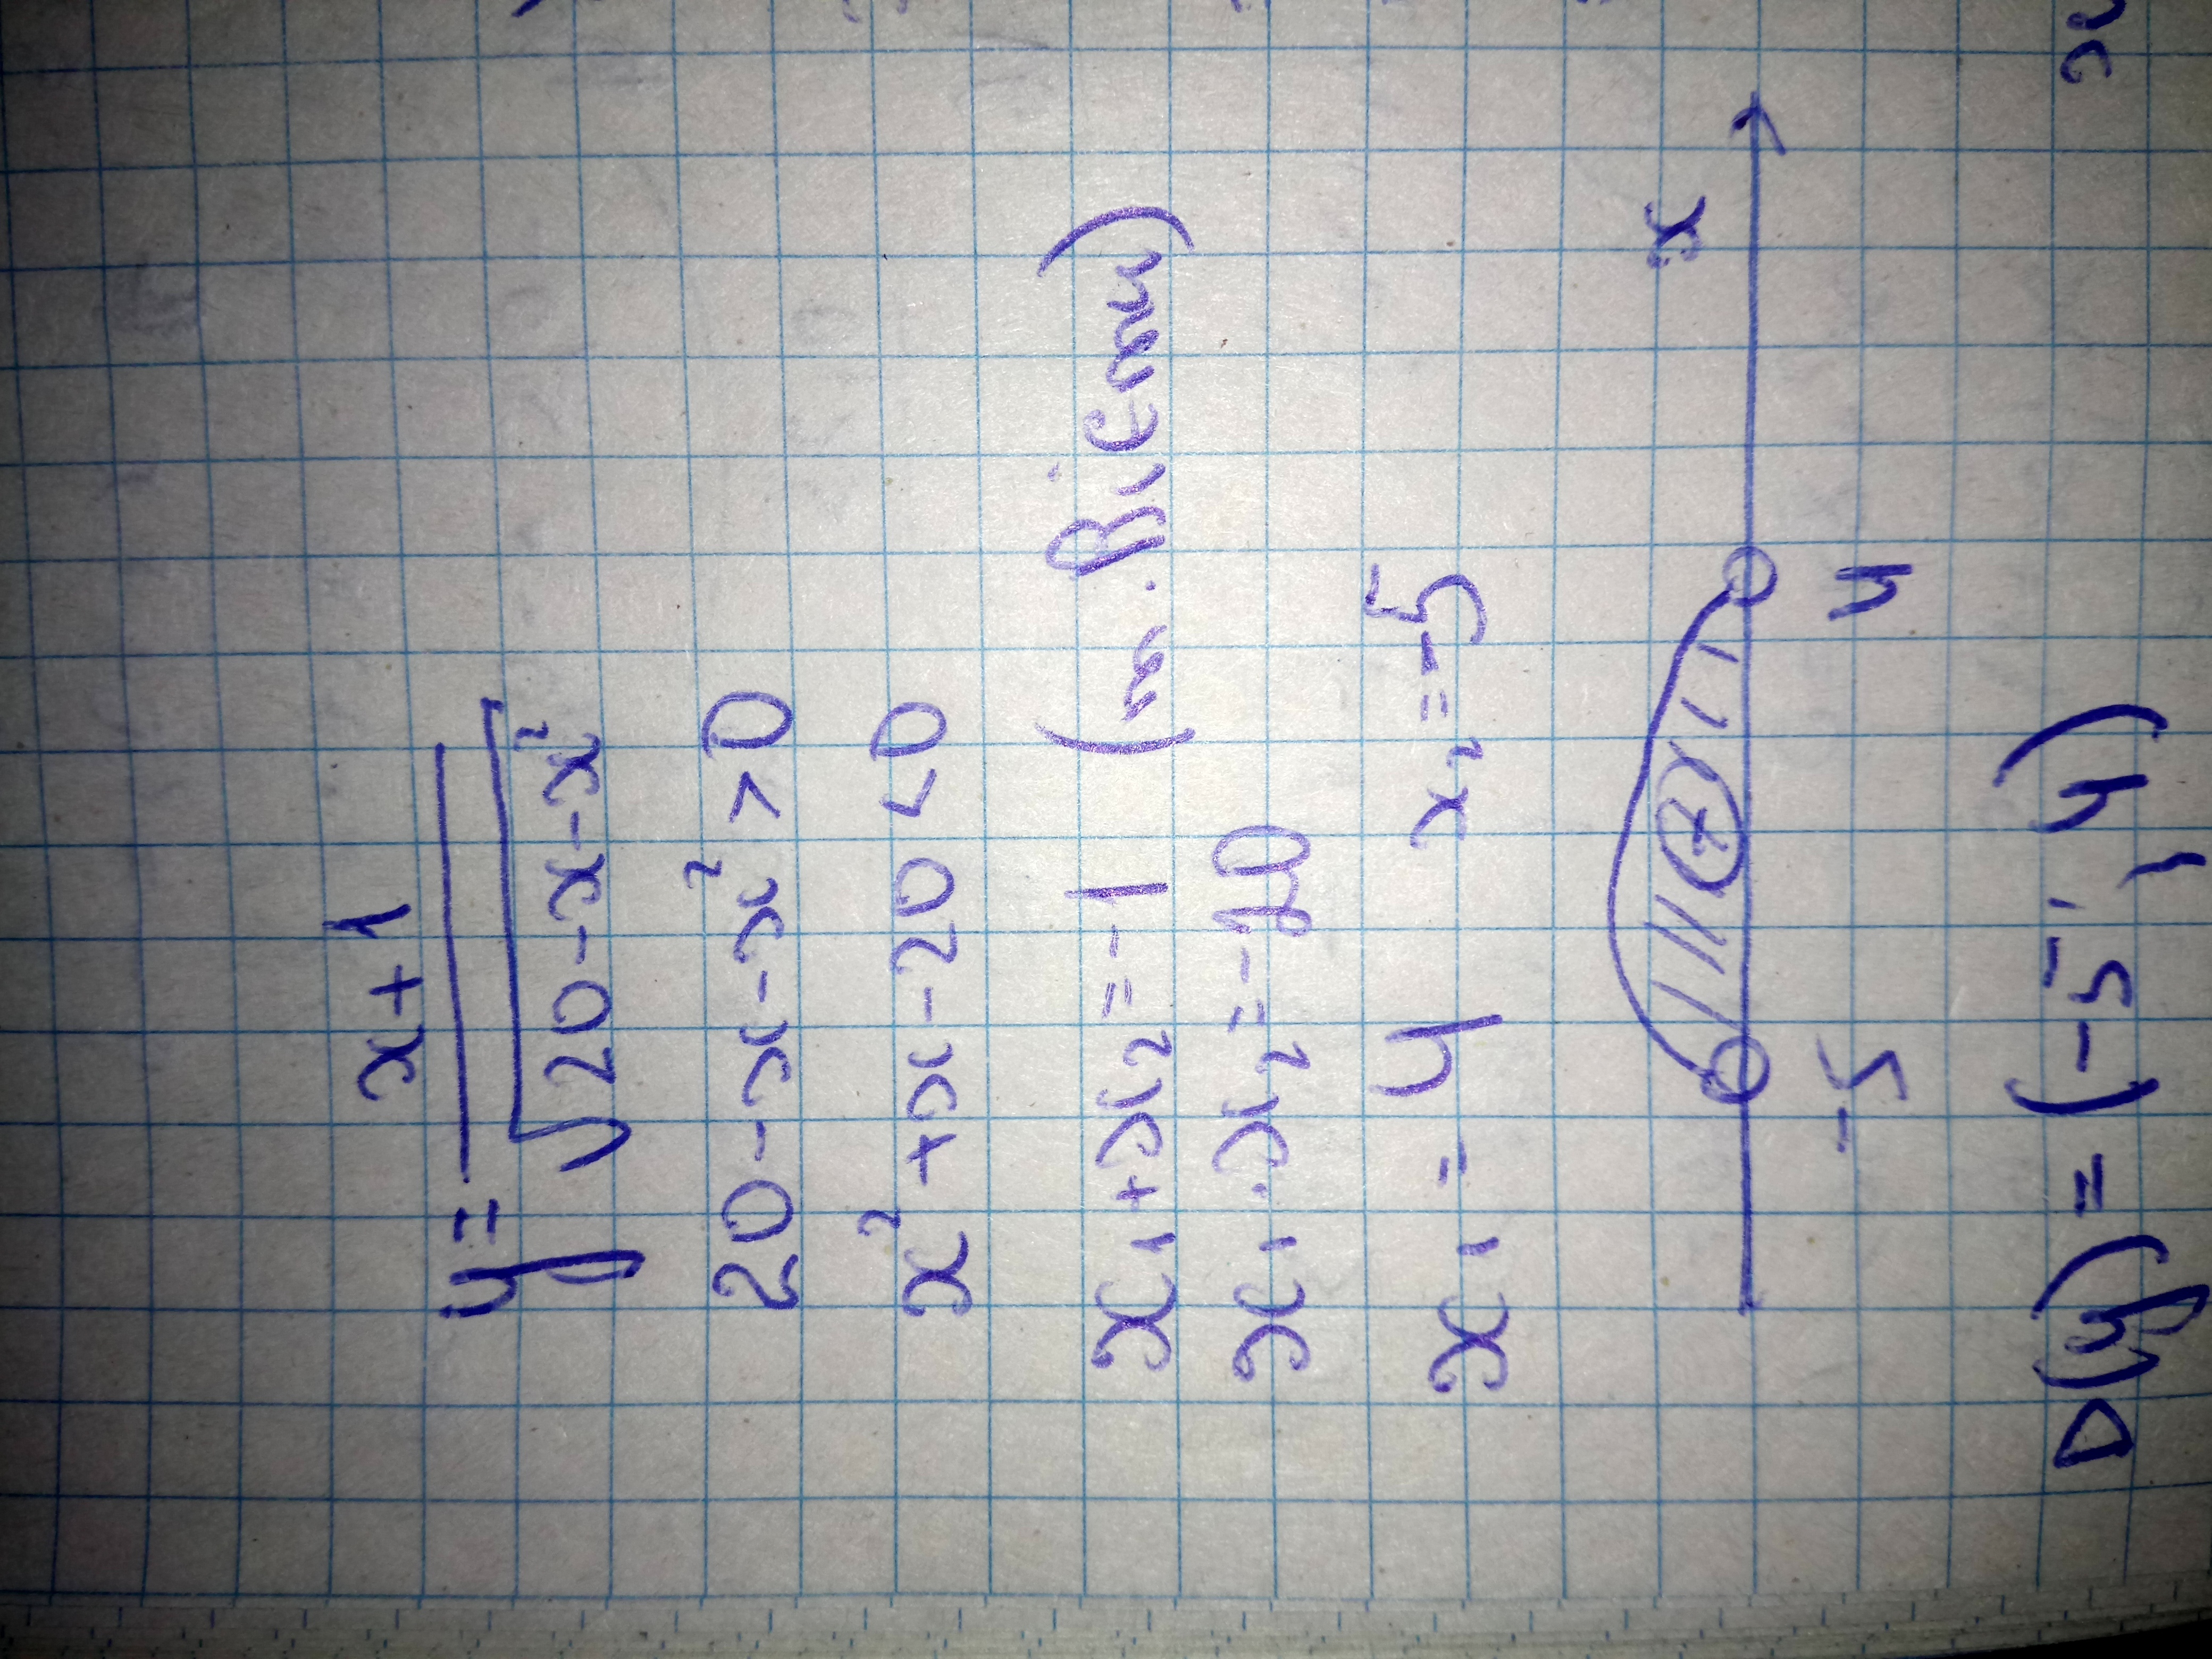 y = x+1 / √20-x-x²
20-x-x²>0
x²+x-20<0
x₁+x₂=-1 (т. Вієта)
x₁·x₂=-20
x₁=4 x₂=-5
+ x
-5 4
D(y) = (-5; 4)